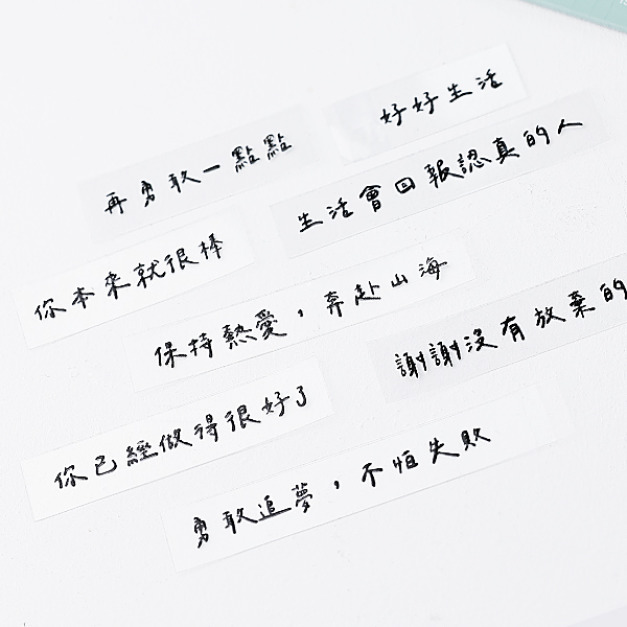 好好生活
再勇敢一點點
生活會回報認真的人
你本來就很棒
保持熱愛，奔赴山海
謝謝沒有放棄的
你已經做得很好了
勇敢追夢，不怕失敗